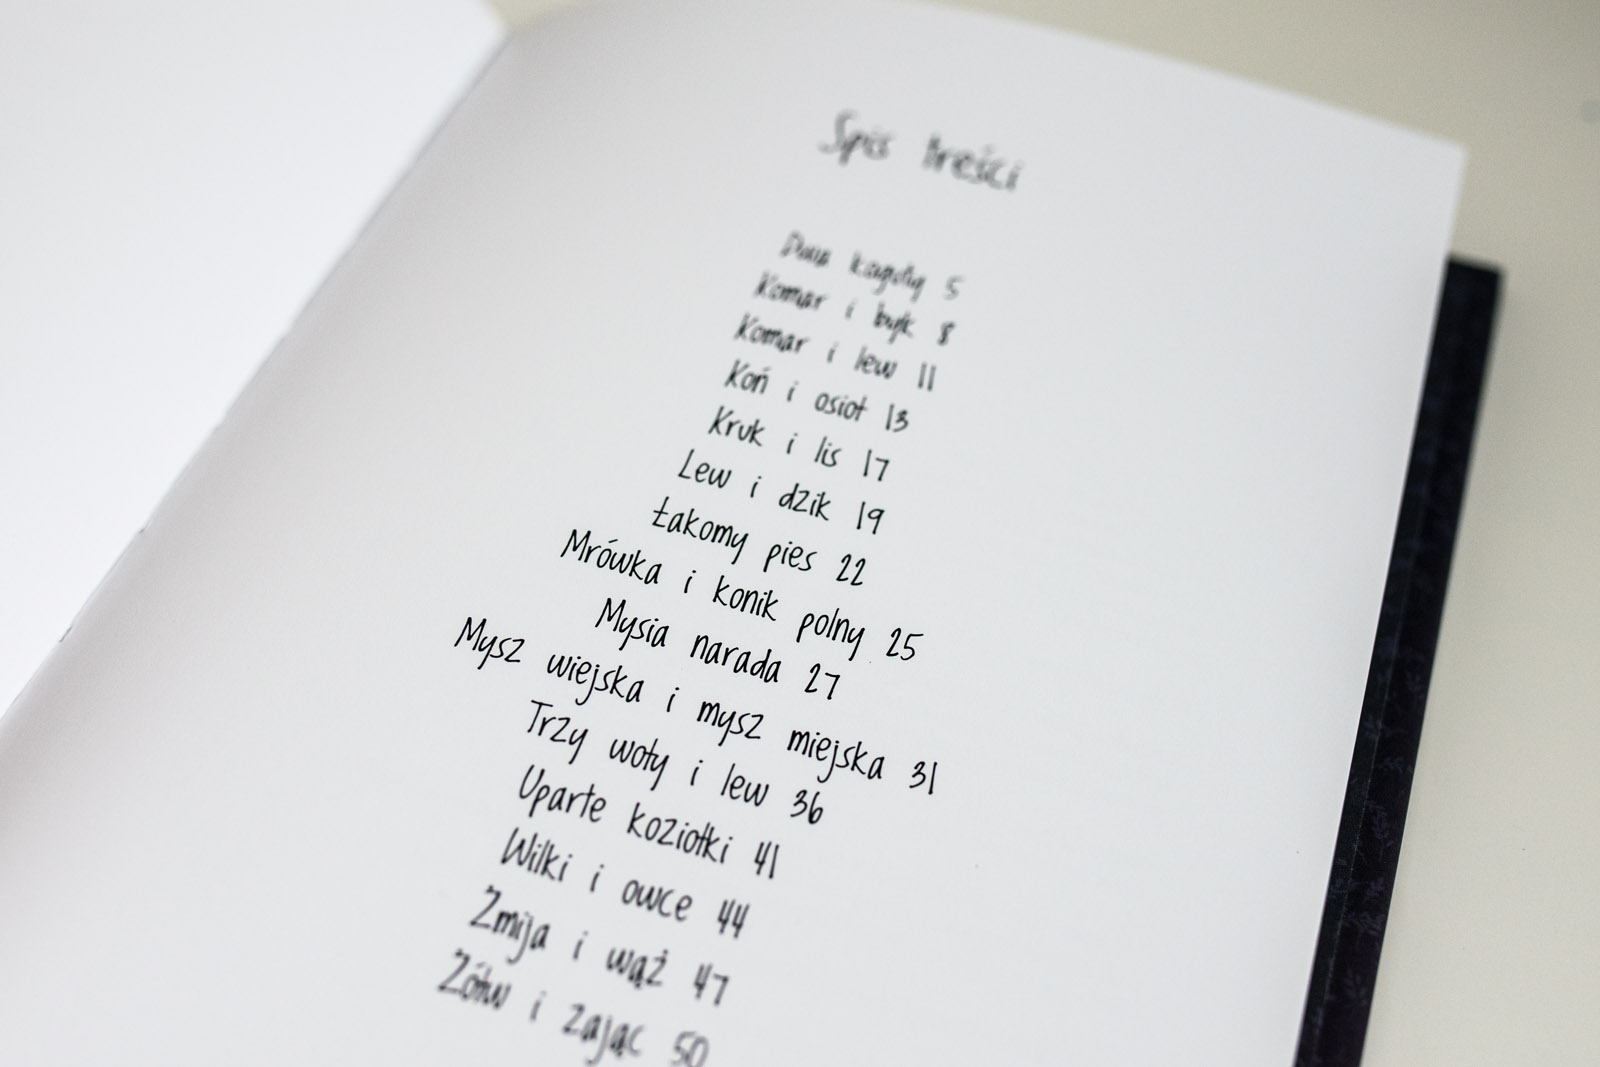 Spis treści
Dwa koguty 5
Komar i byk 8
Komar i lew 11
Koń i osioł 13
Kruk i lis 17
Lew i dzik 19
Łakomy pies 22
Mrówka i konik polny 25
Mysia narada 27
Mysz wiejska i mysz miejska 31
Trzy woły i lew 36
Uparte koziołki 41
Wilki i owce 44
Żmija i wąż 47
Żółw i zając 50